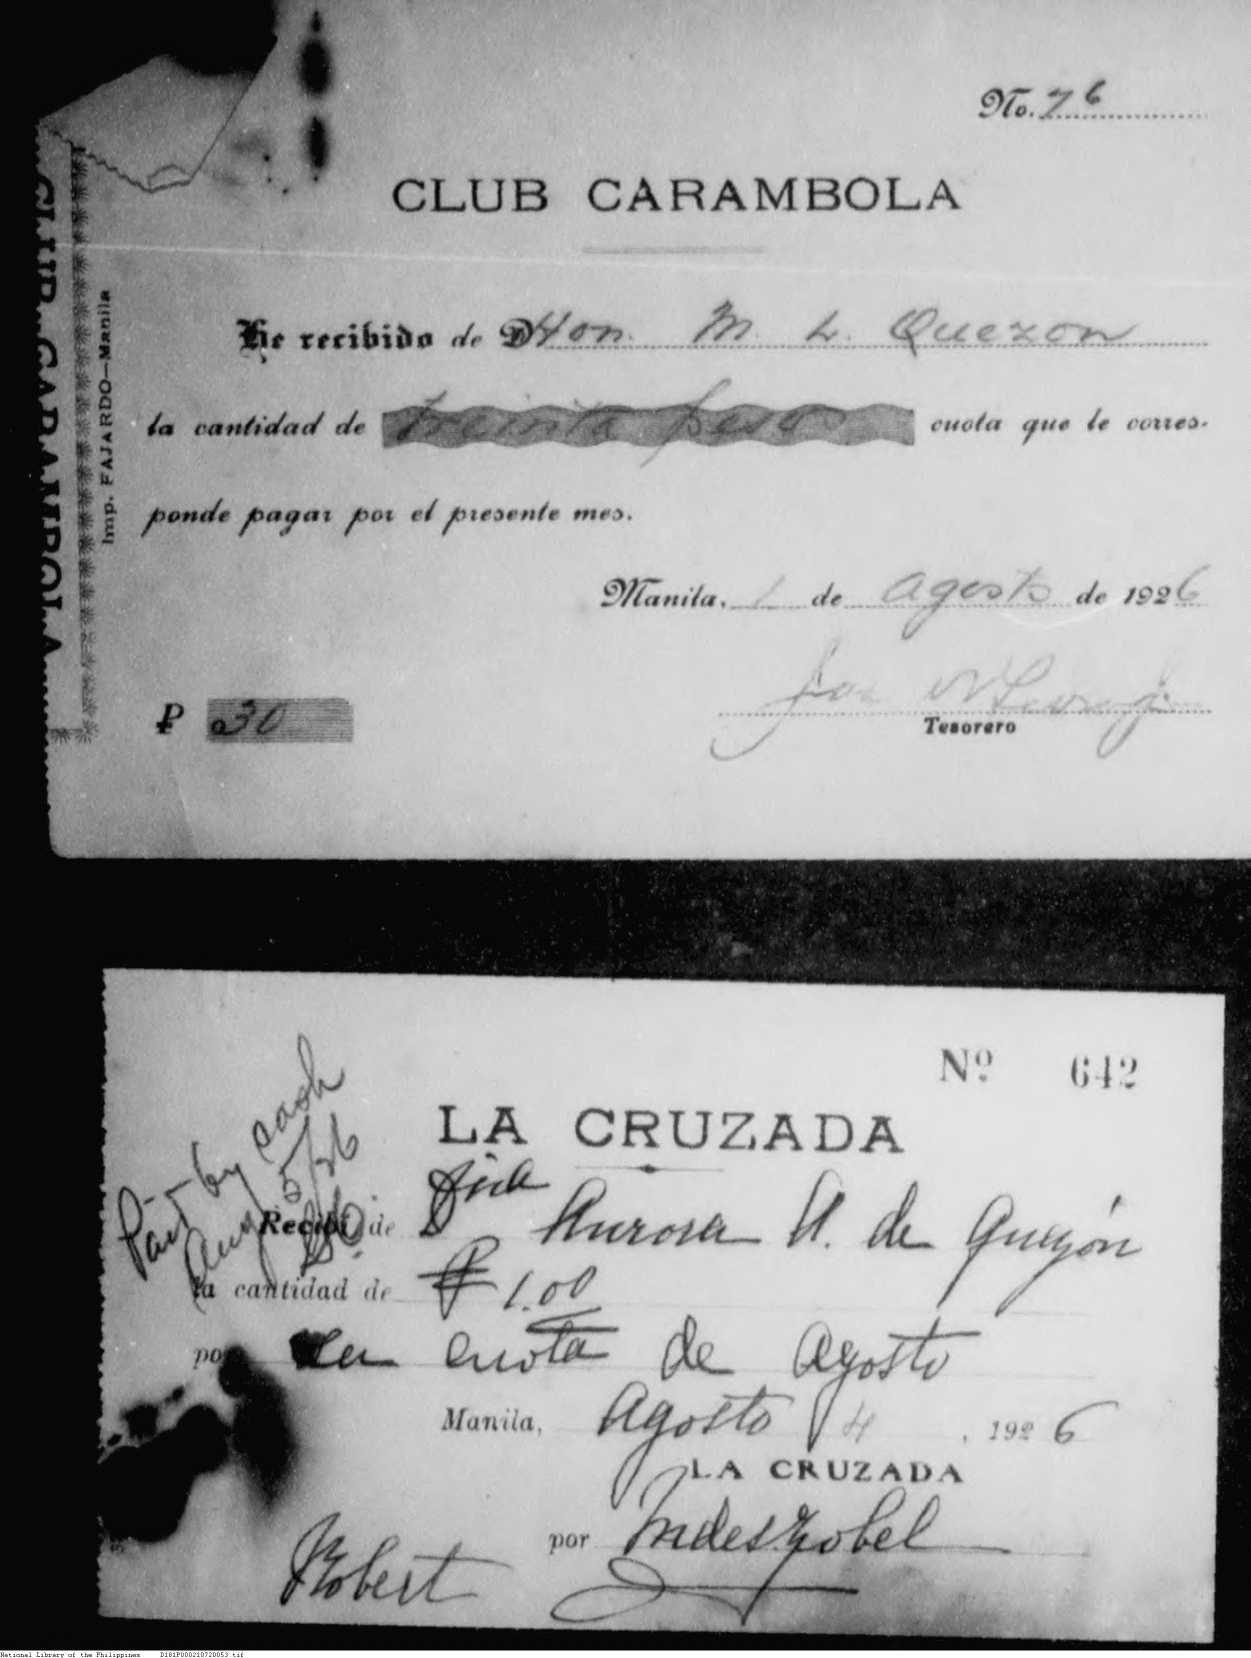 No. 76
CLUB CARAMBOLA
He recibido de D Hon. M. L. Quezon
la cantidad de treinta pesos cuota que le corres-
ponde pagar por el presente mes.
Manila, 1 de agosto de 1926
₱ 30
Tesorero
CLUB CARAMBOLA
Imp. FAJARDO—Manila
Nº 642
LA CRUZADA
Paid by cash
Aug 5/26
Recibí de Aurora A. de Quezón
la cantidad de ₱ 1.00
por la cuota de Agosto
Manila, Agosto 4, 1926
LA CRUZADA
por
Robert
National Library of the Philippines D181P000210720053.tif